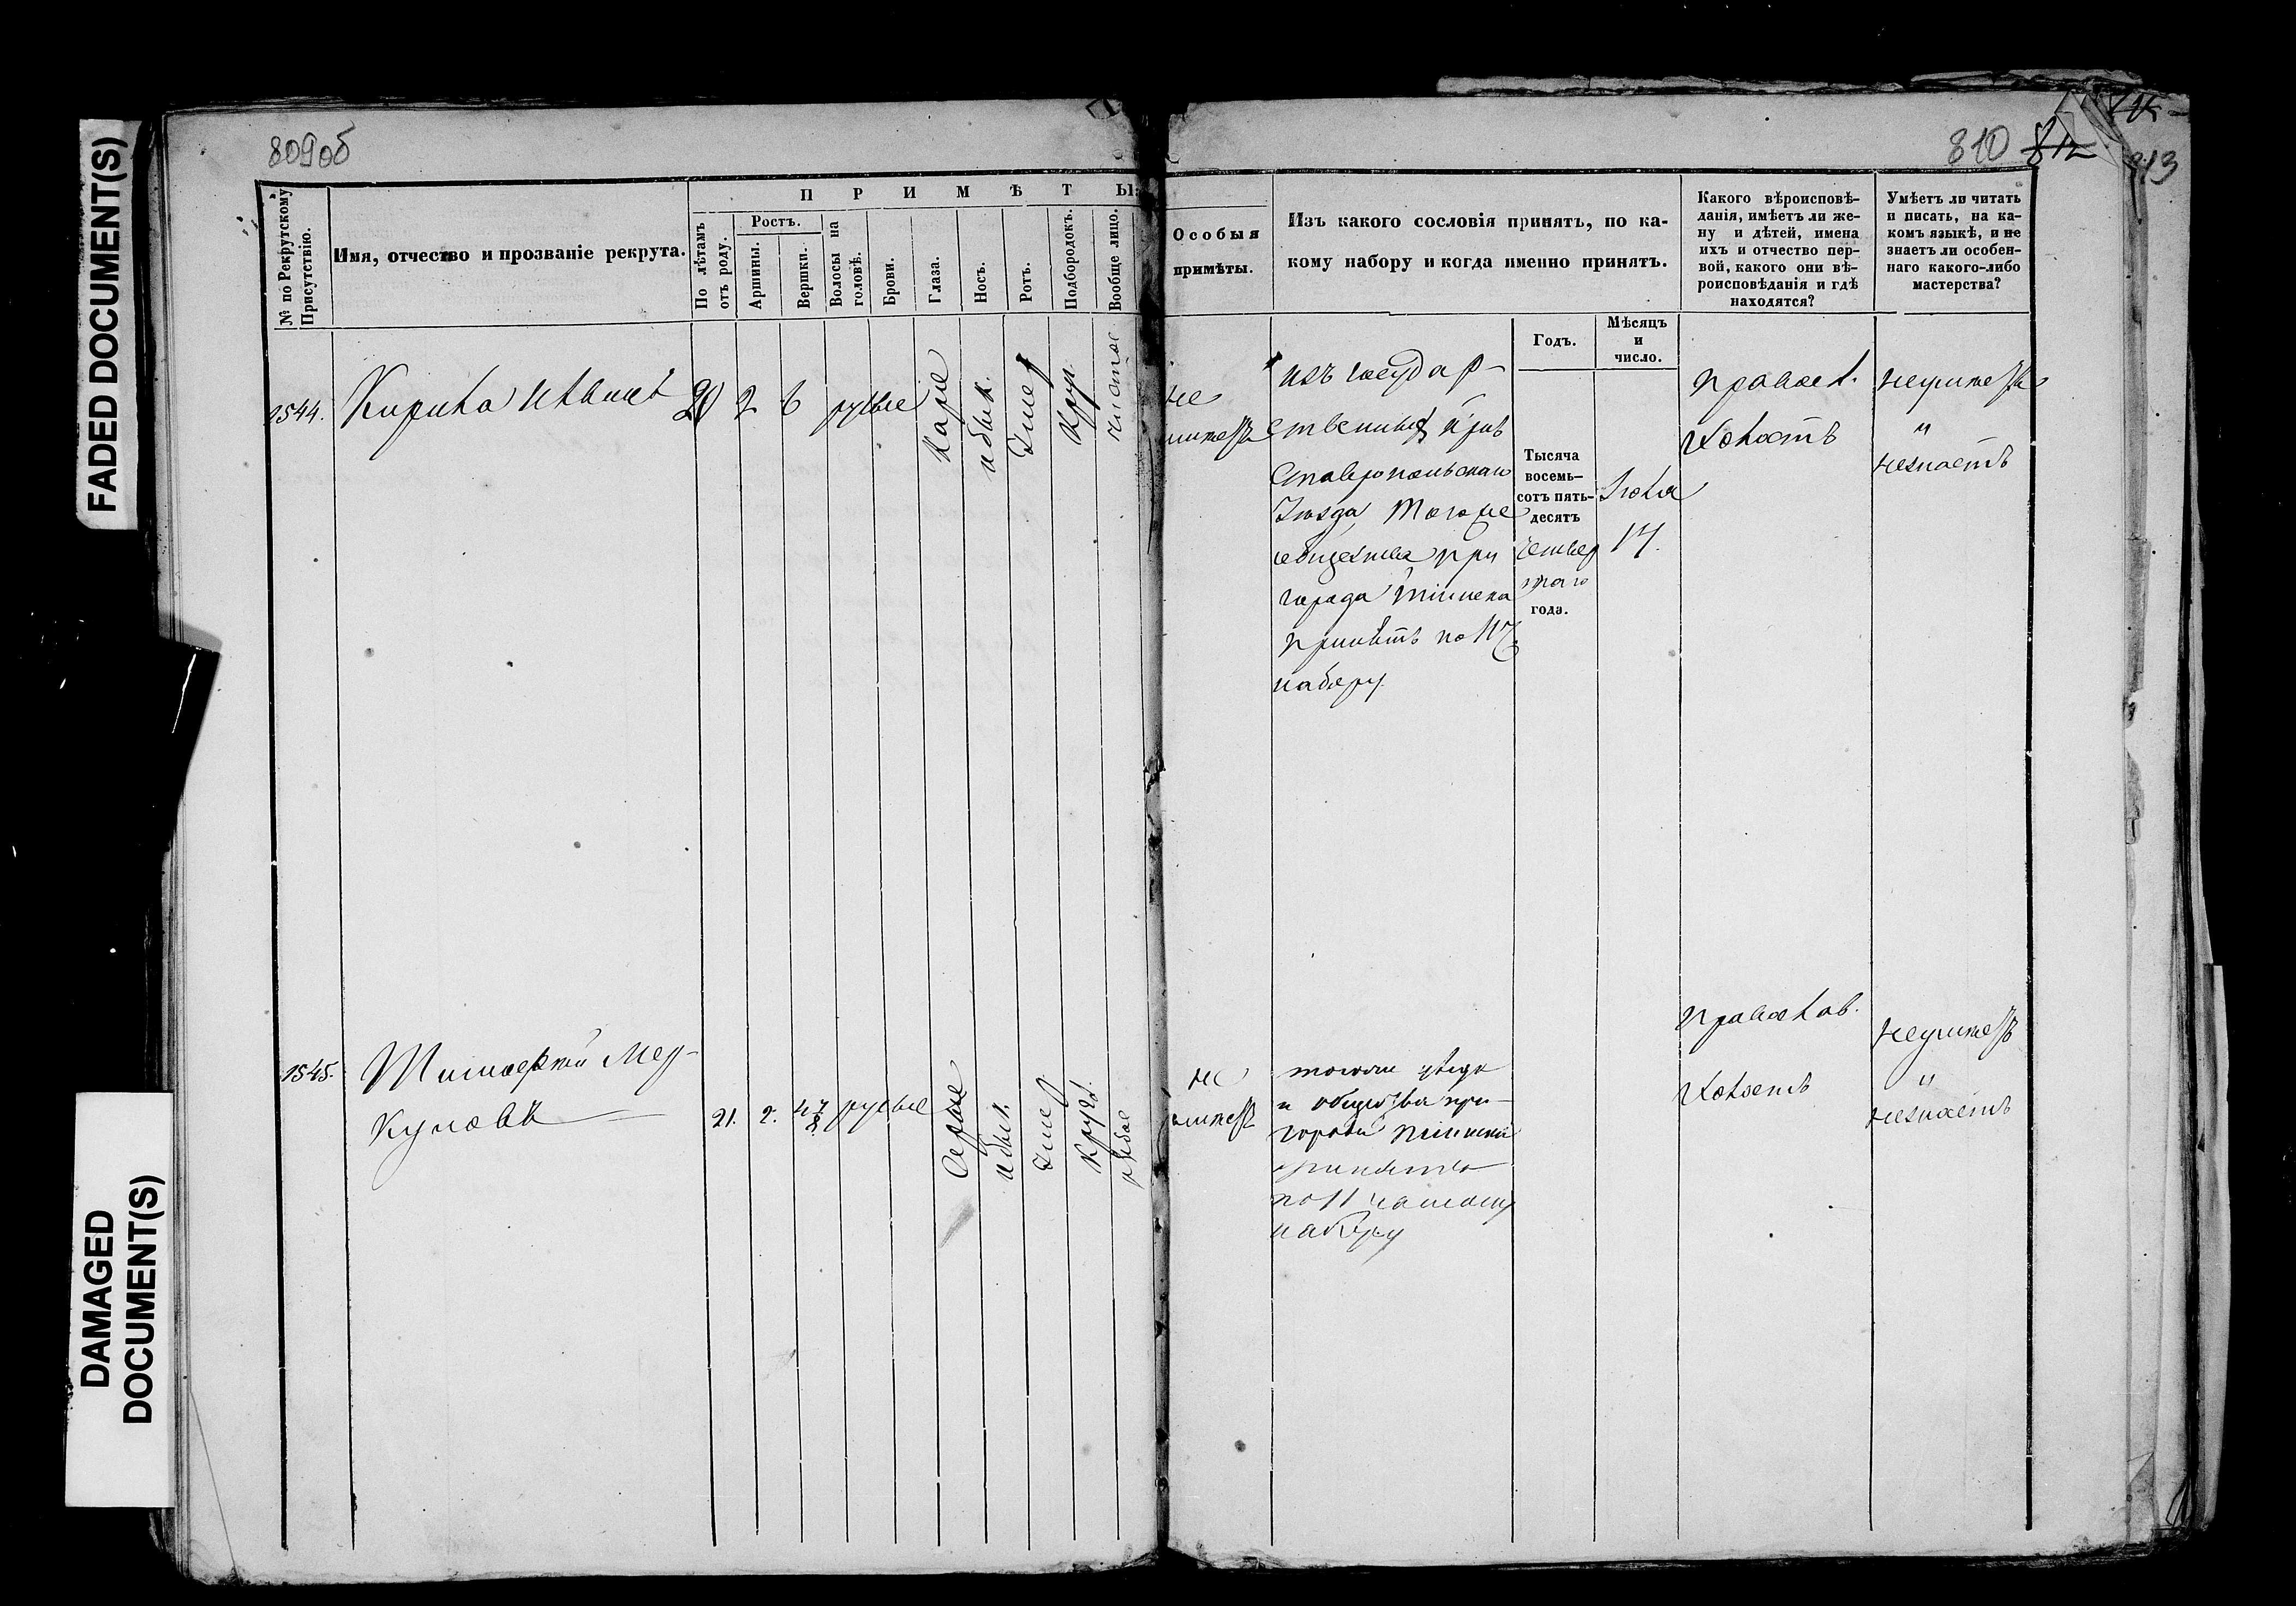 FADED DOCUMENT(S)
DAMAGED
DOCUMENT(S)
809об
810 812
813
П Р И М Ѣ Т Ы:
№ по Рекрутскому
Присутствію.
Имя, отчество и прозваніе рекрута.
По лѣтамъ
отъ роду.
Ростъ.
Аршины.
Вершки.
Волосы на
головѣ.
Брови.
Глаза.
Носъ.
Ротъ.
Подбородокъ.
Вообще лицо.
Особыя
примѣты.
Изъ какого сословія принятъ, по ка-
кому набору и когда именно принятъ.
Годъ.
Мѣсяцъ
и
число.
Какого вѣроисповѣ-
данія, имѣетъ ли же-
ну и дѣтей, имена
ихъ и отчество пер-
вой, какого они вѣ-
роисповѣданія и гдѣ
находятся?
Умѣетъ ли читать
и писать, на ка-
комъ языкѣ, и не
знаетъ ли особен-
наго какого-либо
мастерства?
1544.
Кирила
20
2
6
русые
Карие
обык.
Круг.
чистое
не
имѣетъ
изъ государ-
ственныхъ
Ставропольскаго
Уѣзда
общества при
города
принятъ по 11
набору
Тысяча
восемь-
сотъ пять-
десятъ
четвер
таго
года.
Июля
17.
правосл.
Холостъ
неумѣетъ
"
незнаетъ
1545.
21.
2.
4 7/8
русые
Серые
обык.
кругл.
рябое
не
имѣетъ
тогоже уѣзда
и общества при-
города
принятъ
по 11
набору
православ.
Холостъ
неумѣетъ
"
незнаетъ